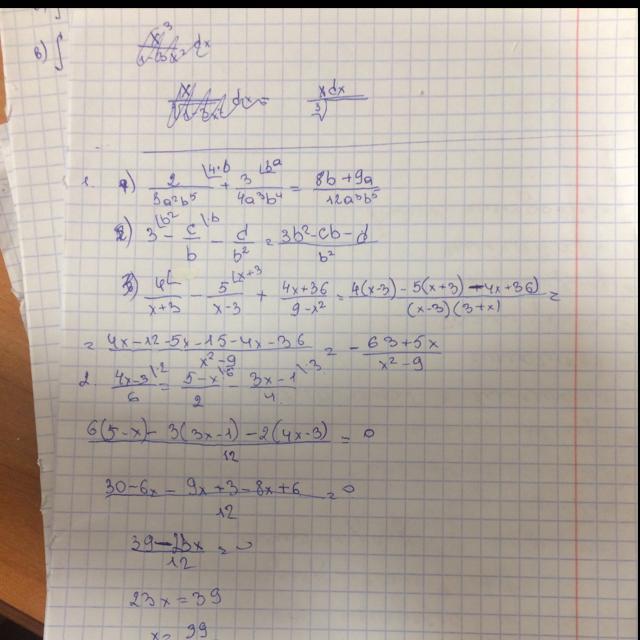 в) ∫ x³ dx
dx = xdx / ∛
1. 1) 2/3a²b⁵ \4·b + 3/4a³b⁴ \3a = 8b+9a / 12a³b⁵
2) 3 \b² - c/b \b - d/b² = 3b²-cb-d / b²
3) 4/x+3 - 5/x-3 \x+3 + 4x+36 / 9-x² = 4(x-3)-5(x+3)-4x+36) / (x-3)(3+x) =
= 4x-12-5x-15-4x-36 / x²-9 = - 63+5x / x²-9
2. 4x-3/6 \2 = 5-x/2 \6 - 3x-1/4 \3
6(5-x)-3(3x-1)-2(4x-3) / 12 = 0
30-6x-9x+3-8x+6 / 12 = 0
39-23x / 12 = 0
23x = 39
x = 39